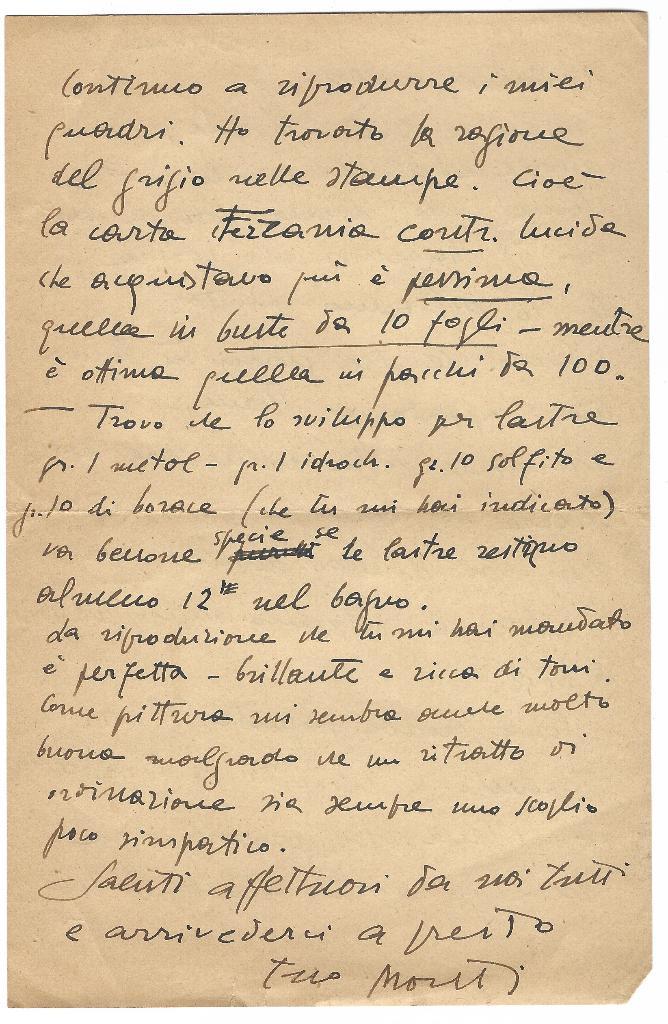 Continuo a riprodurre i miei
quadri. Ho trovato la ragione
del grigio nelle stampe. Cioè
la carta Ferrania contr. lucida
che acquistavo qui è pessima,
quella in buste da 10 fogli – mentre
è ottima quella in pacchi da 100.
— Trovo che lo sviluppo per lastre
gr. 1 metol – gr. 1 idroch. gr. 10 solfito e
gr. 10 di borace (che tu mi hai indicato)
va benone specie se le lastre restano
almeno 12' nel bagno.
La riproduzione che tu mi hai mandato
è perfetta – brillante e ricca di toni.
Come pittura mi sembra anche molto
buona malgrado che un ritratto di
ordinazione sia sempre uno scoglio
poco simpatico.
Saluti affettuosi da noi tutti
e arrivederci a presto
tuo